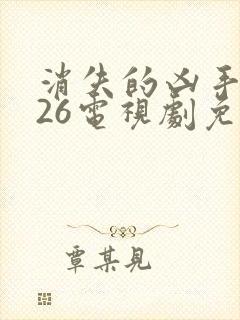 消失的凶手
26電視劇免
覃某見